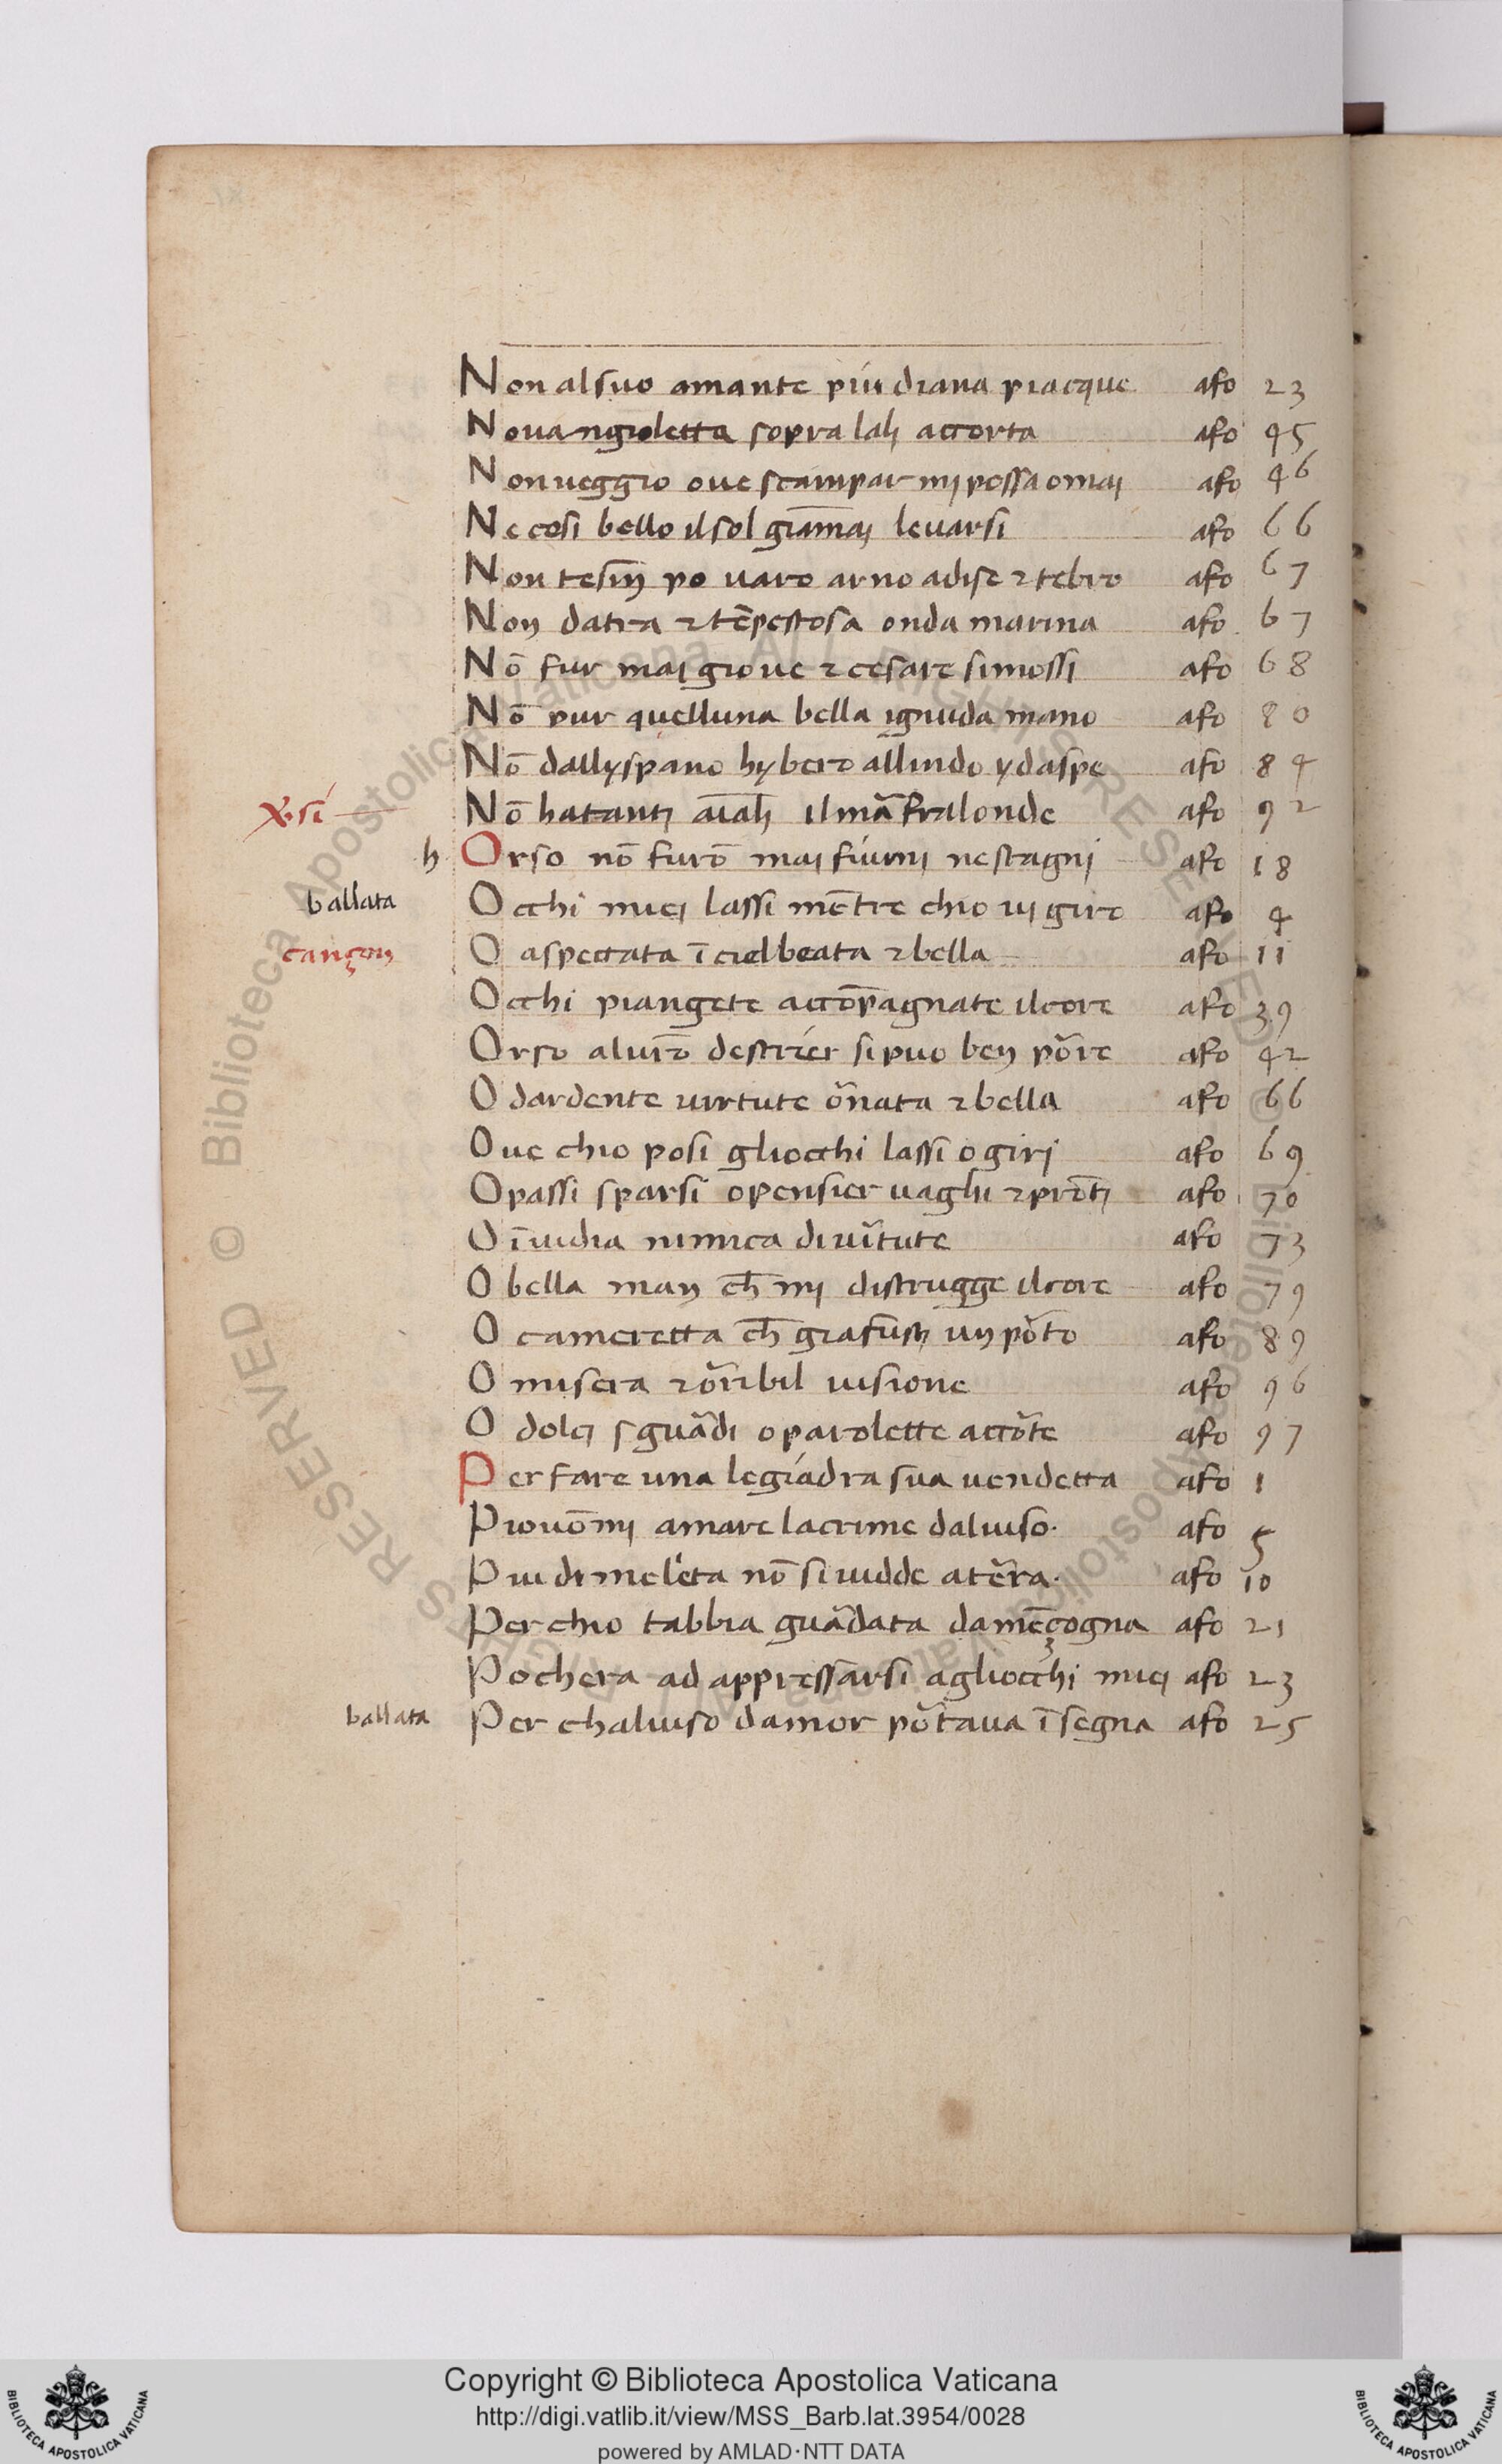 Non al suo amante piu diana piacque afo 23
Noua ngioletta sopra lalj accorta afo 45
Non ueggio oue scampar mj possa omaj afo 46
Ne cosi bello il sol giam̄aj leuarsi afo 66
Non tesin po uaro arno adise ⁊ tebro afo 67
Non datra ⁊ tēpestosa onda marina afo 67
Nō fur maj gioue ⁊ cesare simossi afo 68
Nō pur quelluna bella ignuda mano afo 80
Nō dallyspano hybero allindo ydaspe afo 84
Nō ha tantj aīalj il mar̄ fralonde afo 92
h Orso nō furō maj fiumj nestagnj afo 18
ballata Occhi miej lassi mētre chio uj giro afo 4
canzon O aspectata ī ciel beata ⁊ bella afo 11
Occhi piangete accōpagnate il core afo 39
Orso aluiro destrier si puo ben pōre afo 42
O dardente uirtute ōnata ⁊ bella afo 66
Oue chio posi gliocchi lassi o girj afo 69
O passi sparsi o pensier uaghi ⁊ prōtj afo 70
O īuidia nimica di uītute afo 73
O bella man ch̄ mj distrugge il core afo 79
O cameretta ch̄ gia fustj un pōto afo 89
O misera ⁊ ōribil uisione afo 96
O dolcj sguādi o parolette accōte afo 97
Per fare una legiadra sua uendetta afo 1
Piouō mj amare lacrime dal uiso. afo 5
Piu di me lieta nō si uidde a tēra. afo 10
Per chio tabbia guādata da mēçogna afo 21
Pochera ad appressarsi agliocchi miej afo 23
ballata Per chal uiso damor pōtaua īsegna afo 25
Copyright © Biblioteca Apostolica Vaticana
http://digi.vatlib.it/view/MSS_Barb.lat.3954/0028
powered by AMLAD·NTT DATA